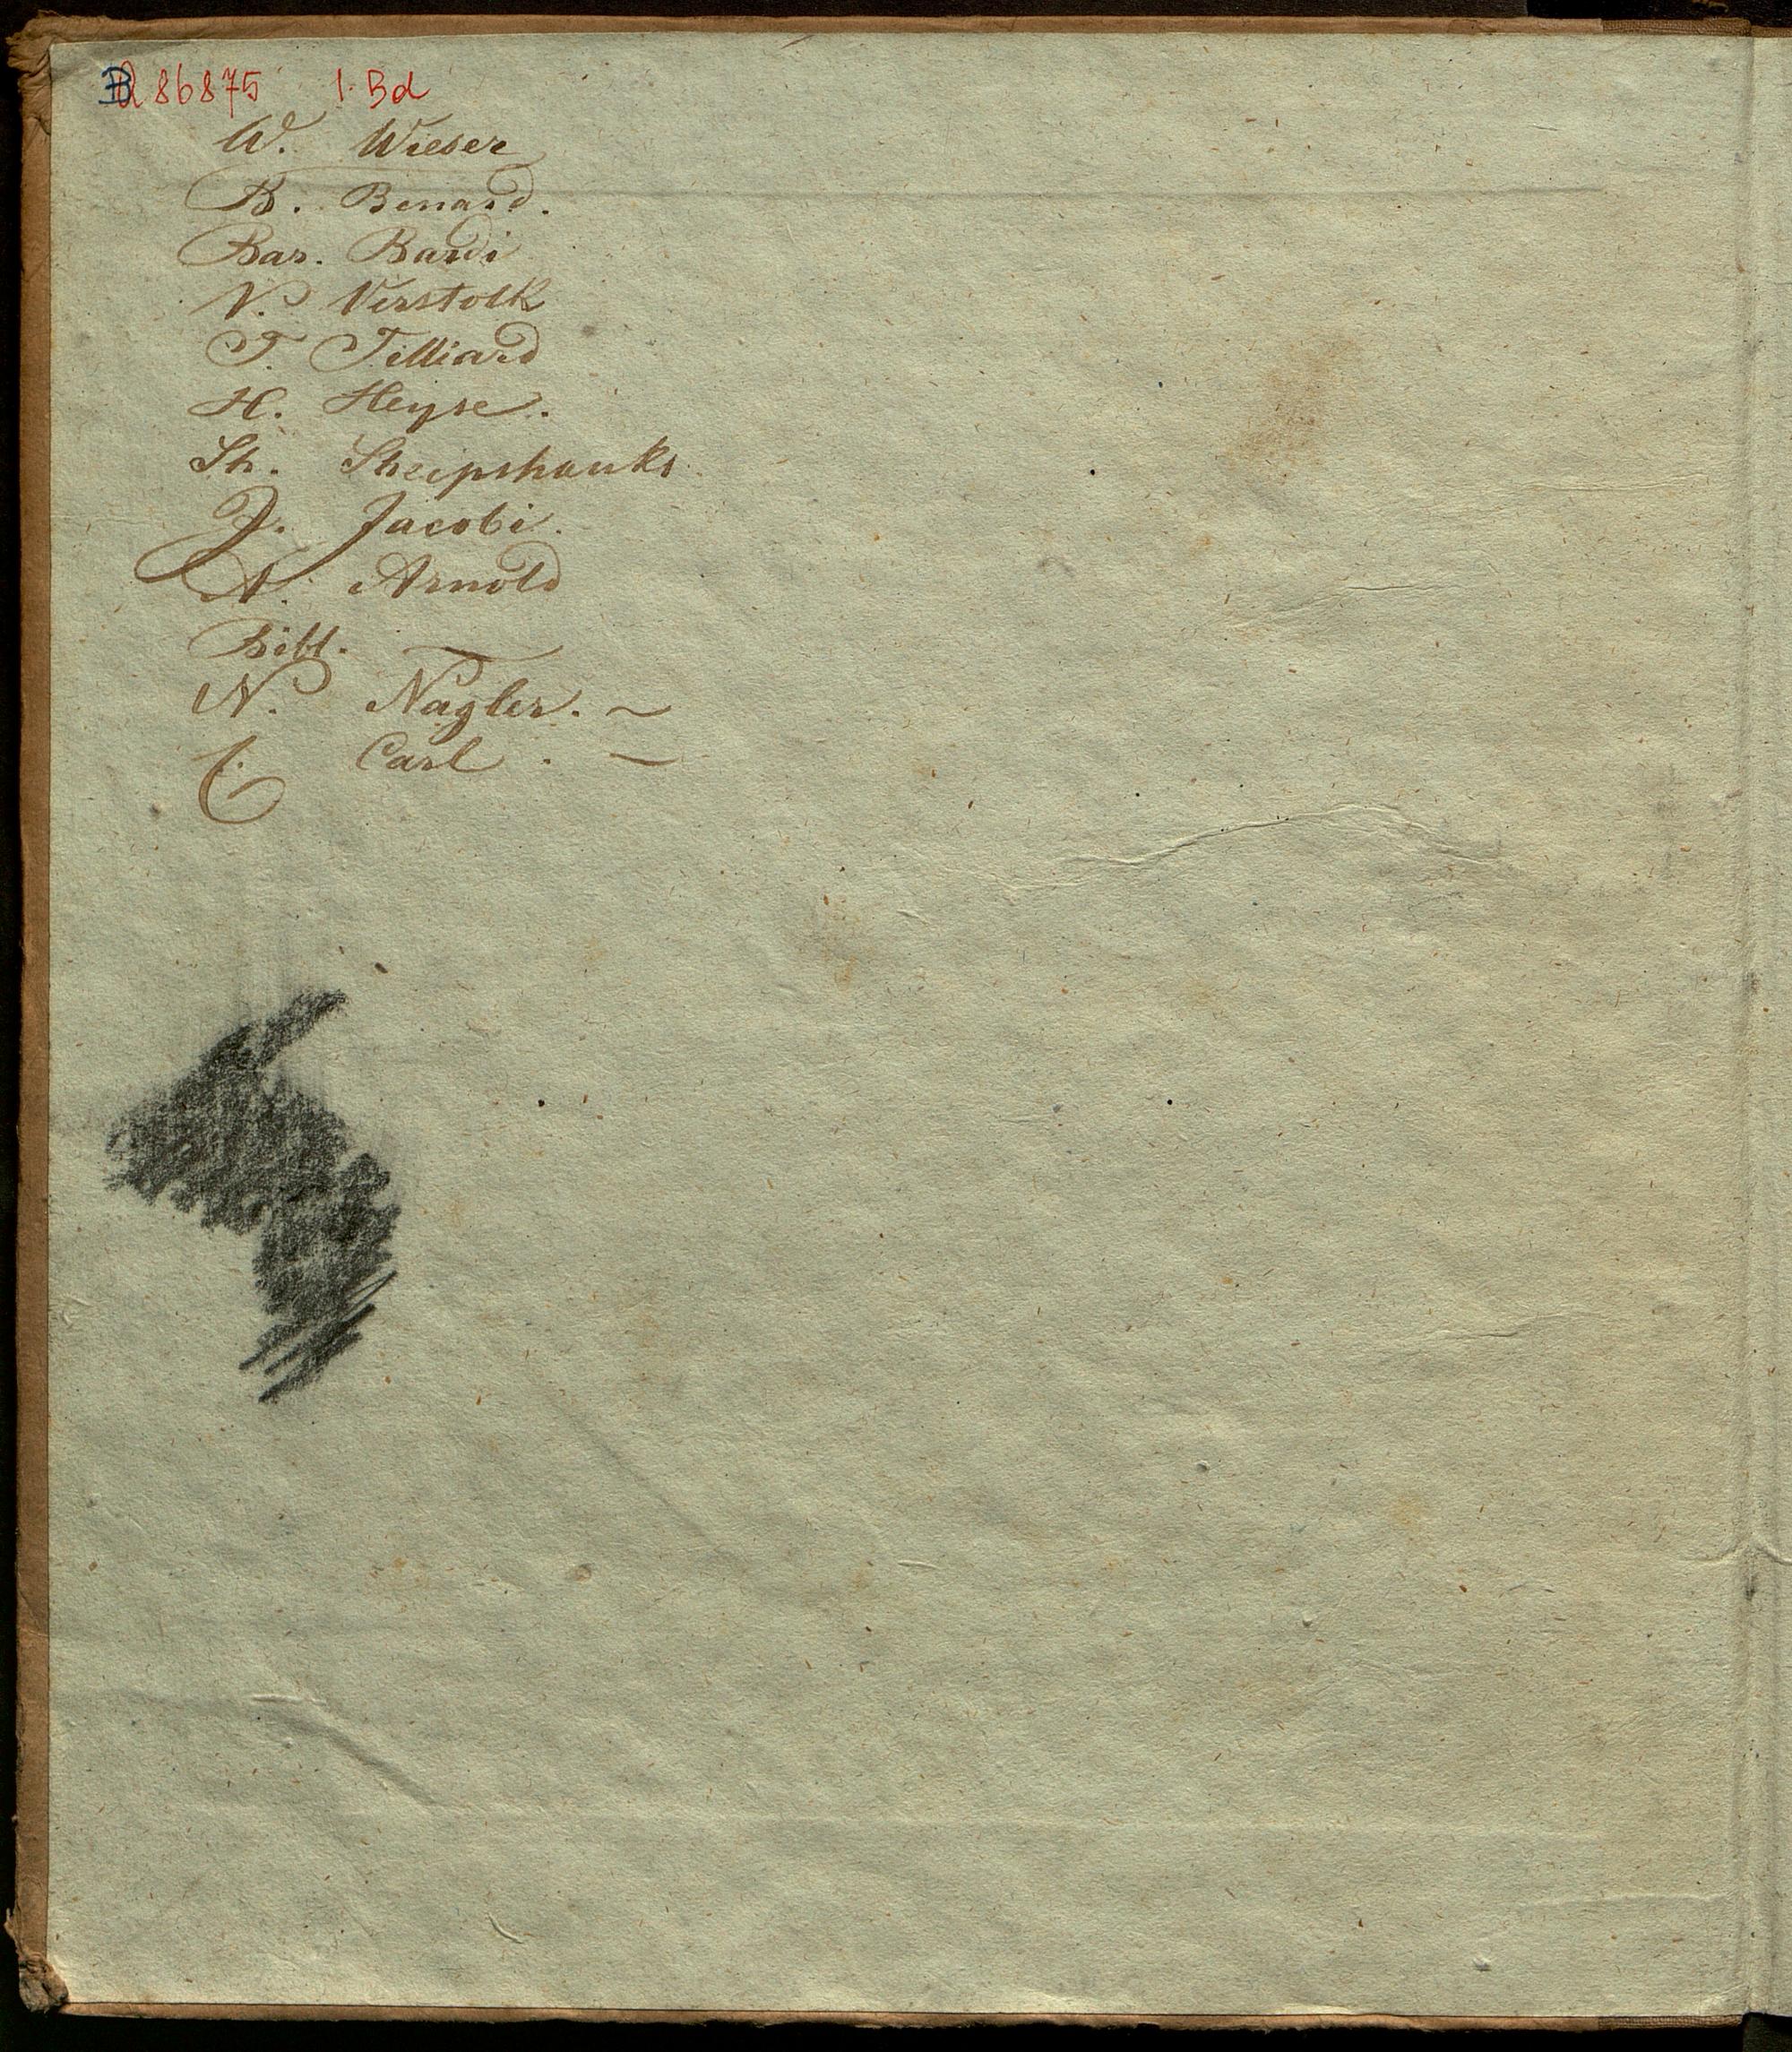 B 86875 1. Bd
W. Wieser
B. Benard.
Bar. Bardi
V. Verstolk
T. Tilliard
H. Heyse.
Sh. Sheipshanks
J. Jacobi.
A. Arnold
Bibl.
N. Nagler. –
C. Carl. –